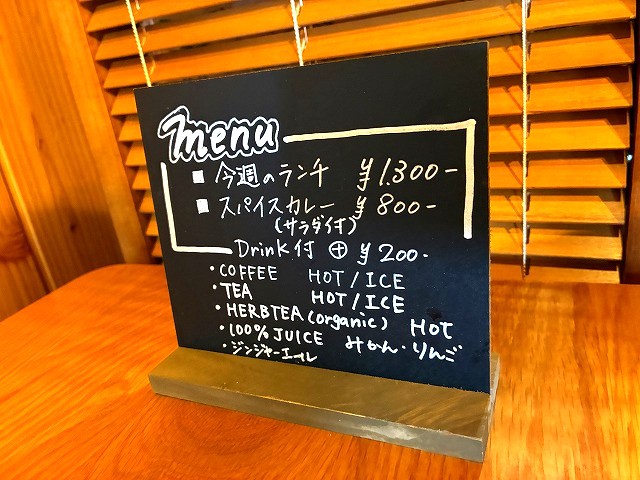 menu
■ 今週のランチ ¥1.300-
■ スパイスカレー ¥800-
(サラダ付)
Drink付 ⊕ ¥200-
・COFFEE HOT/ICE
・TEA HOT/ICE
・HERBTEA(organic) HOT
・100%JUICE みかん・りんご
・ジンジャーエール